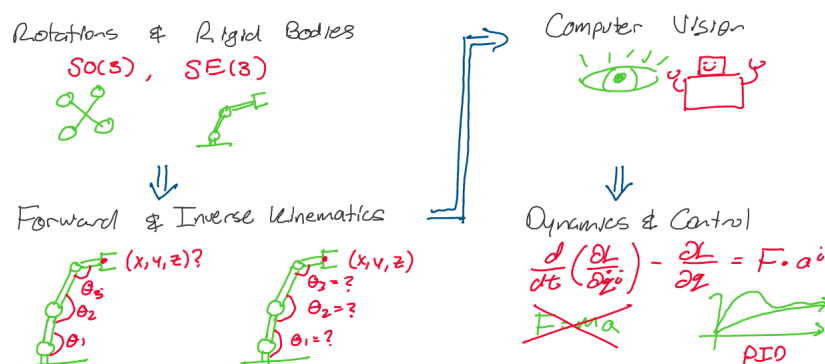 Rotations & Rigid Bodies
SO(3), SE(3)
Forward & Inverse Kinematics
(x,y,z)?
θ3
θ2
θ1
(x,y,z)
θ3=?
θ2=?
θ1=?
Computer Vision
Dynamics & Control
d/dt (∂L/∂q̇) - ∂L/∂q = F·a
F=ma
PID